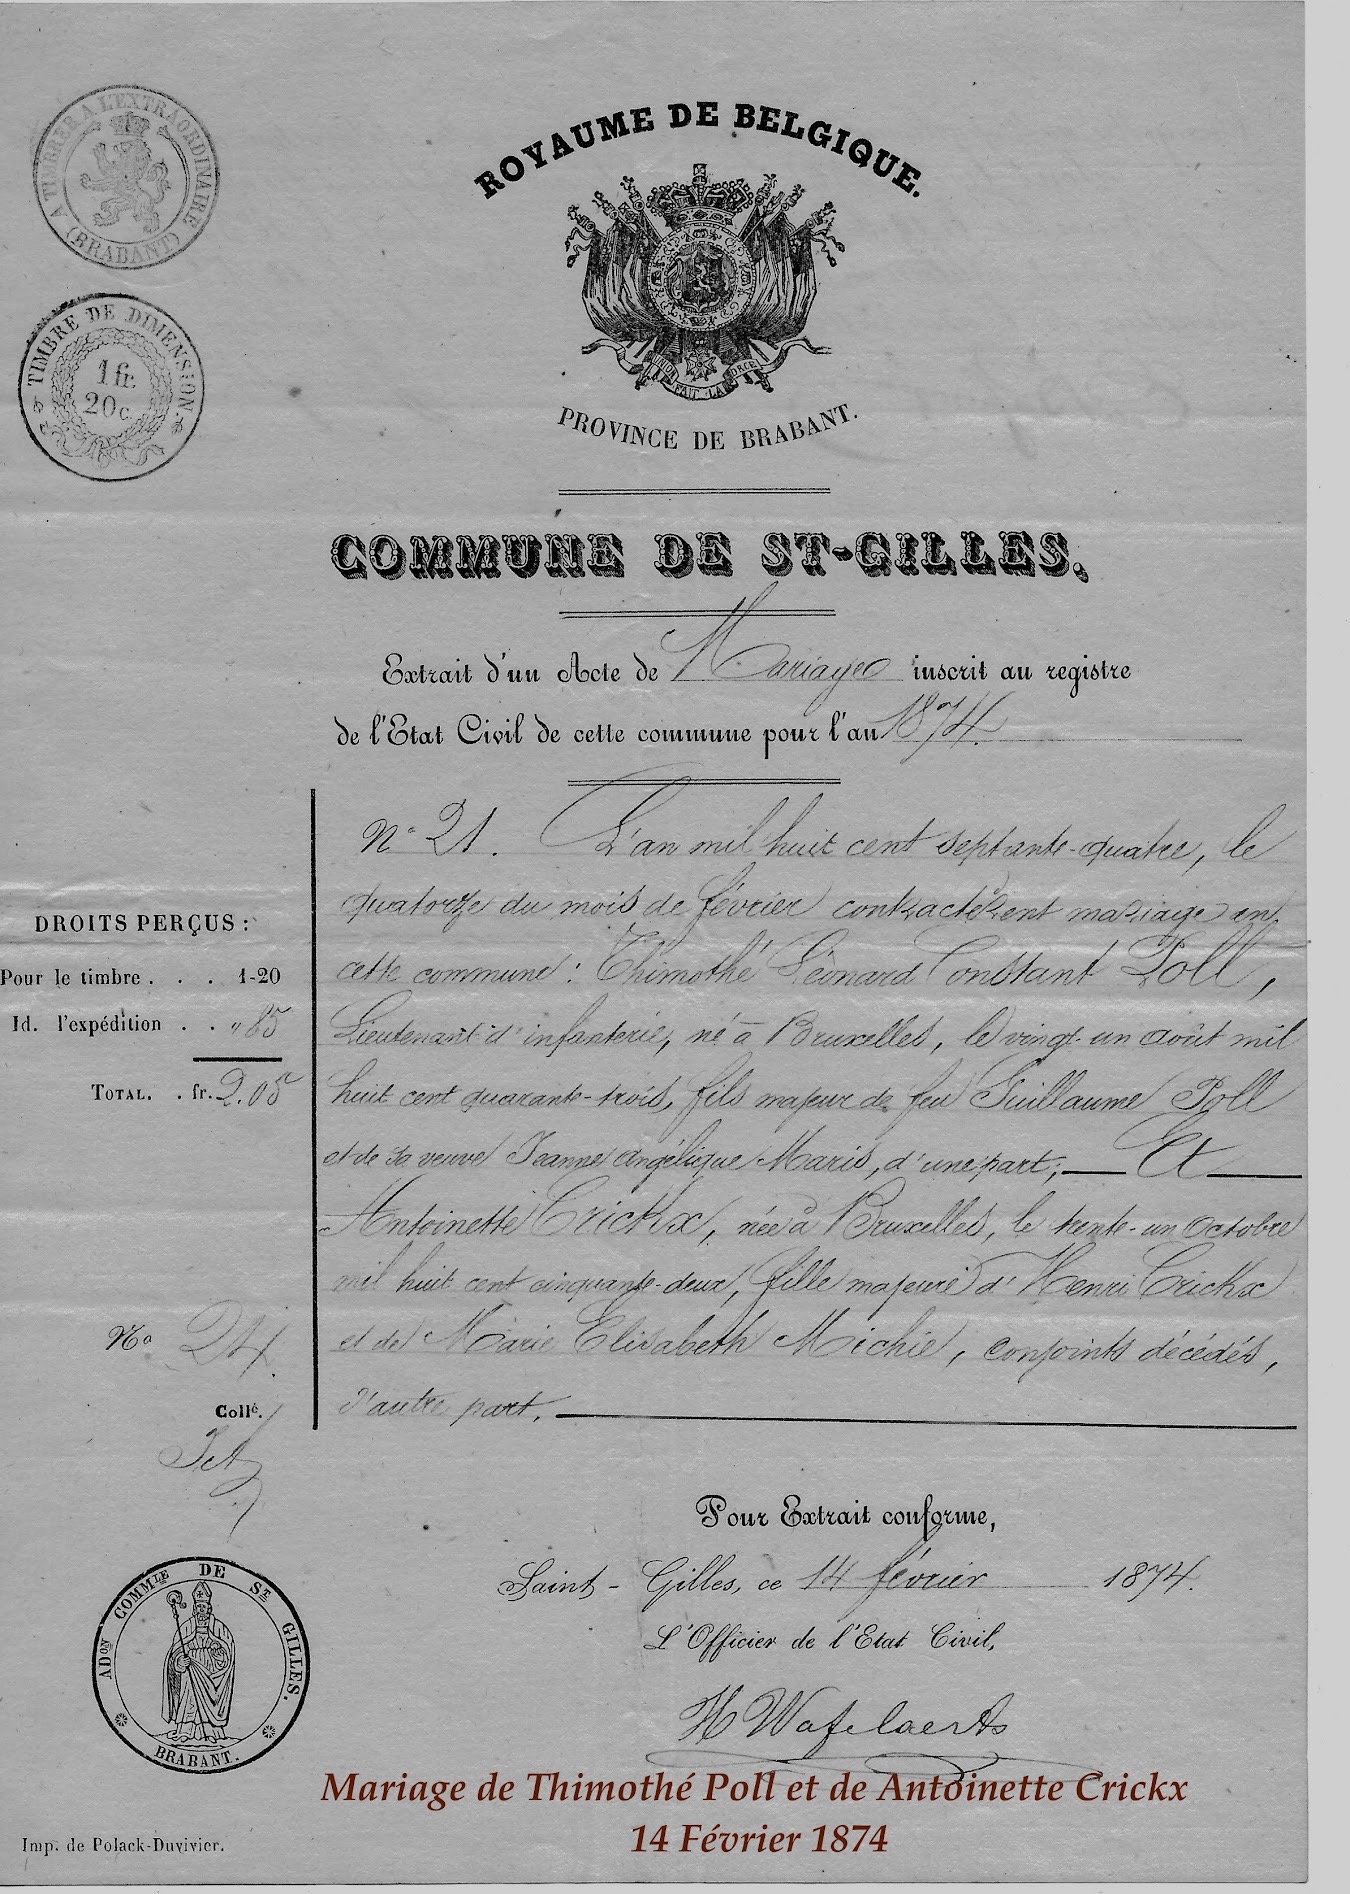 A TIMBRER A L'EXTRAORDINAIRE
(BRABANT)
TIMBRE DE DIMENSION.
1 fr.
20 c.
ROYAUME DE BELGIQUE.
UNION FAIT LA FORCE
PROVINCE DE BRABANT.
COMMUNE DE ST-GILLES.
Extrait d'un Acte de Mariage inscrit au registre
de l'Etat Civil de cette commune pour l'an 1874.
N° 21. L'an mil huit cent septante-quatre, le
quatorze du mois de février contractèrent mariage en
cette commune: Thimothé Léonard Constant Poll,
Lieutenant d'infanterie, né à Bruxelles, le vingt-un août mil
huit cent quarante-trois, fils majeur de feu Guillaume Poll
et de sa veuve Jeanne Angélique Maris, d'une part; Et
Antoinette Crickx, née à Bruxelles, le trente-un octobre
mil huit cent cinquante-deux, fille majeure d'Henri Crickx
et de Marie Elisabeth Michie, conjoints décédés,
d'autre part.
DROITS PERÇUS :
Pour le timbre . . . 1-20
Id. l'expédition . . " 85
TOTAL. . fr. 2.05
No 24.
Collé.
Pour Extrait conforme,
Saint-Gilles, ce 14 février 1874.
L'Officier de l'Etat Civil,
H Wafelaerts
ADon COMMLE DE ST GILLES.
BRABANT.
Mariage de Thimothé Poll et de Antoinette Crickx
14 Février 1874
Imp. de Polack-Duvivier.